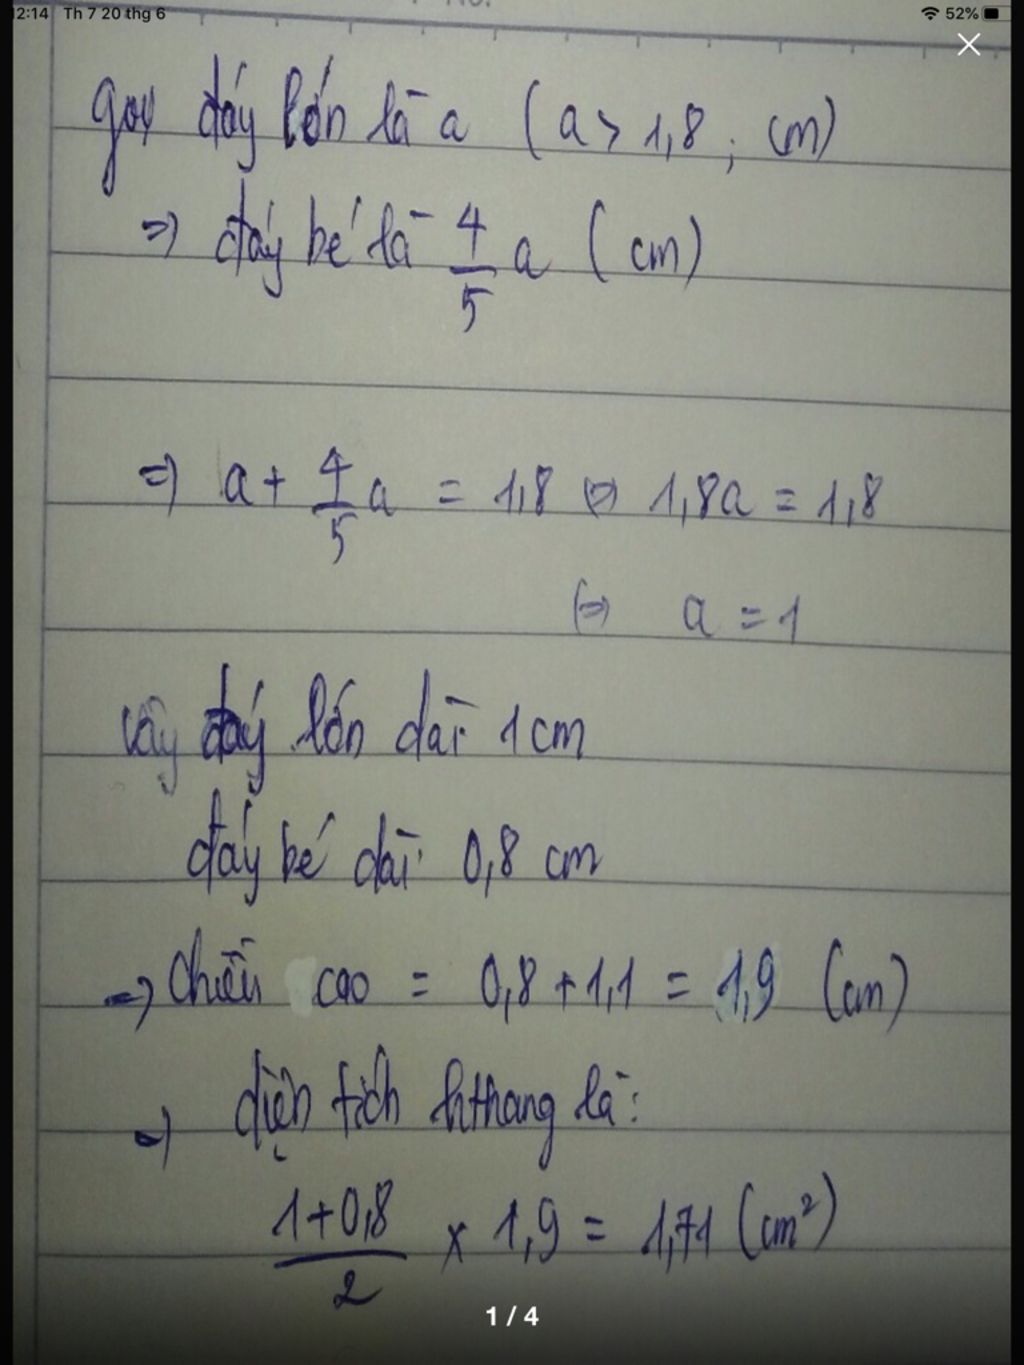 12:14 Th 7 20 thg 6 52%
gọi đáy lớn là a (a > 1,8 ; cm)
=> đáy bé là 4/5 a (cm)
=> a + 4/5 a = 1,8 <=> 1,8a = 1,8
<=> a = 1
vậy đáy lớn dài 1cm
đáy bé dài 0,8 cm
=> chiều cao = 0,8 + 1,1 = 1,9 (cm)
=> diện tích hthang là:
1+0,8/2 x 1,9 = 1,71 (cm²)
1 / 4